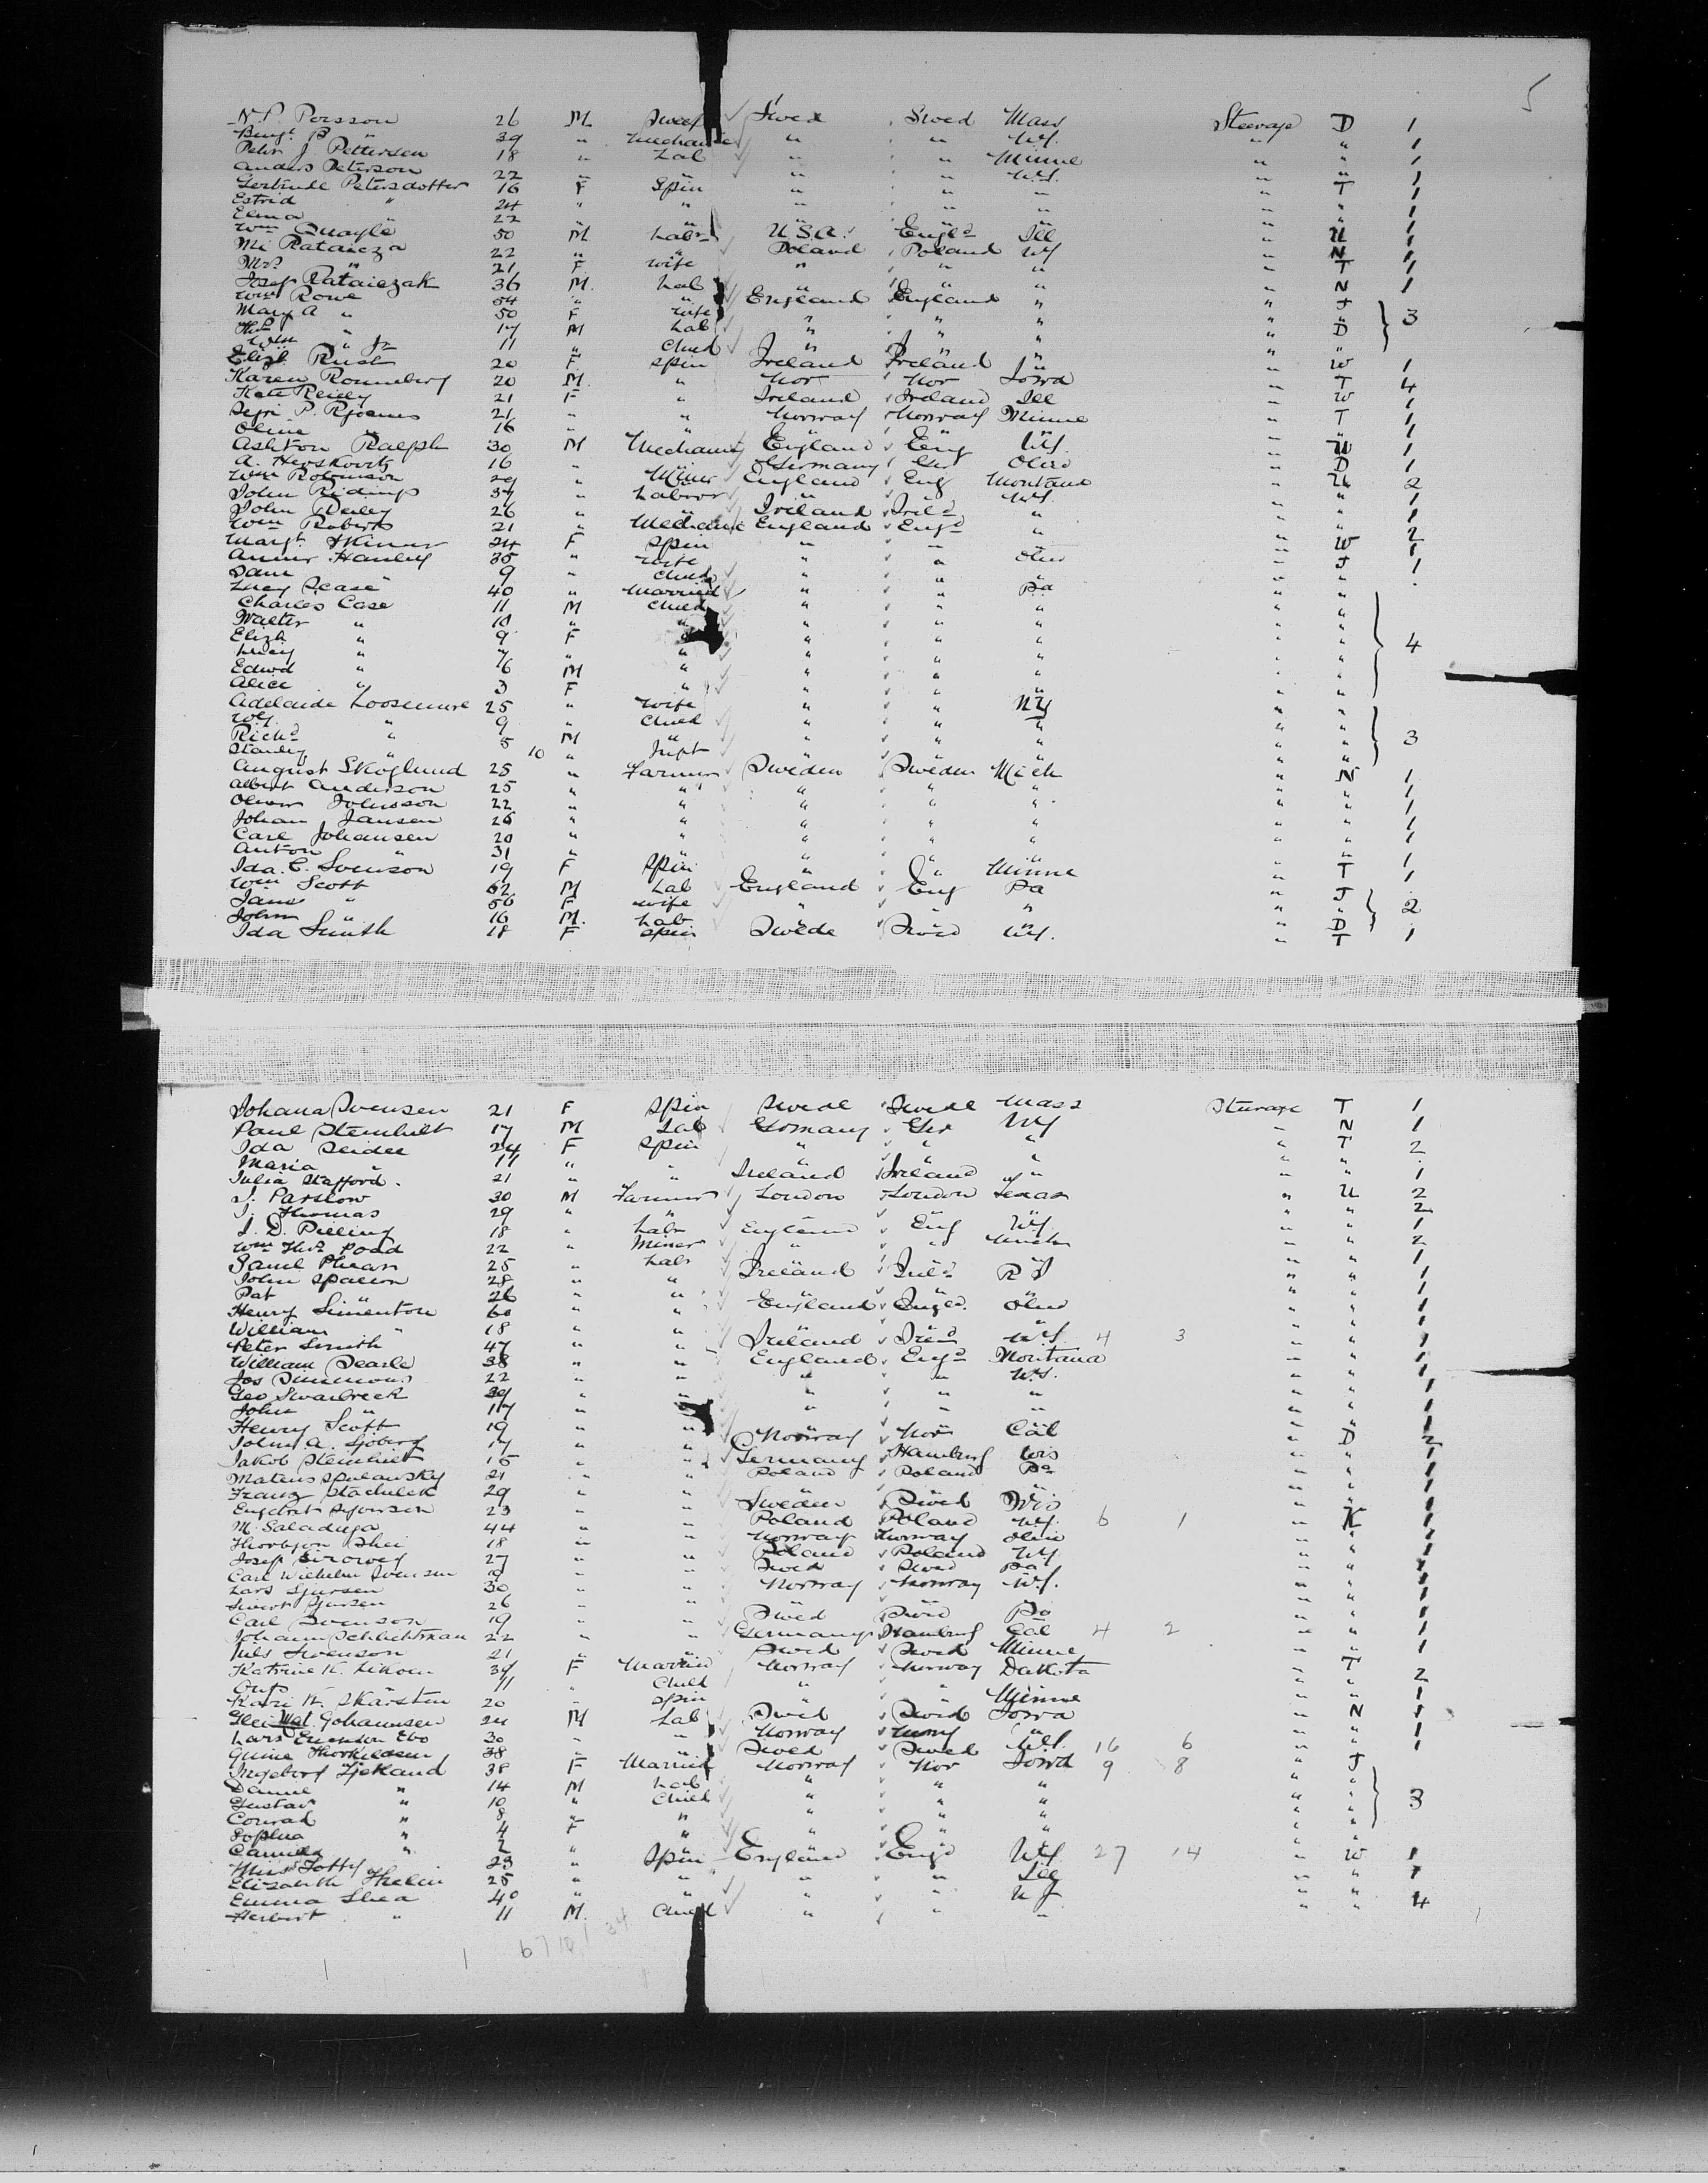 5
N. P. Persson 26 M Swed Swed Mass Steerage D 1
Bengt P " 39 " Mechanic " " NY. " " 1
Pehr J Pettersen 18 " Lab " " Minne " " 1
Anders Peterson 22 " " " " NY. " " 1
Gertrude Petersdotter 16 F Spin " " " " T 1
Estrid " 24 " " " " " " " 1
Elma " 22 " " " " " " " 1
Wm Quayle 50 M Labr U.S.A. Engld Ill " U 1
Mi Rataicza 22 " " Poland Poland NY " N 1
Mrs " 21 F Wife " " " " T 1
Josef Rataiczak 36 M. Lab " " " " N 1
Wm Rowe 54 " " England England " " J
Mary A " 50 F Wife " " " " " 3
Thos " 17 M Lab " " " " D
Wm " Jr 11 " Child " " " " "
Eliz. Rust 20 F Spin Ireland Ireland " " W 1
Karen Ronneberg 20 M. " Nor Nor Iowa " T 4
Kate Reidy 21 F " Ireland Ireland Ill " W 1
P. 21 " " Norway Norway Minne " T 1
Oline " 16 " " " " " " " 1
Ashton Ralph 30 M Mechanic England Eng NY. " U 1
A. Herskovitz 16 " " Germany Ger Ohio " D 1
Wm Robinson 29 " Miner England Eng Montana " U 2
John Ridings 37 " Labour " " NY. " " 1
John Reiley 26 " " Ireland Ireld " " " 1
Wm Roberts 21 " Mechanic England Engd " " " 2
Margt. Skinner 24 F Spin " " " " W 1
Annie Hanley 35 " Wife " " Ohio " J 1
9 " Child " " " " "
Lucy Scase 40 " Married " " Pa " "
Charles Case 11 M Child " " " " "
Walter " 10 " " " " " " "
Elizh. " 9 F " " " " " " 4
Lucy " 7 " " " " " " "
Edwd " 6 M " " " " " "
Alice " 3 F " " " " " "
Adelaide Loosemore 25 " Wife " " NY " "
" 9 " Child " " " " "
Richd " 5 M " " " " " " 3
Stanley " 10 " Inft " " " " "
August Skoglund 25 " Farmer Sweden Sweden Mich " N 1
Albert Anderson 25 " " " " " " " 1
Johnsson 22 " " " " " " " 1
Johan Jansen 26 " " " " " " " 1
Carl Johansen 20 " " " " " " " 1
Anton " 31 " " " " " " " 1
Ida. C. Svenson 19 F Spin " " Minne " T 1
Wm Scott 52 M Lab England Eng Pa " J
Jane " 50 F Wife " " " " " 2
John " 16 M. Lab " " " " D
Ida Smith 18 F Spin Swede Swed NY. " T 1
Johana Svensen 21 F Spin Swede Swede Mass Steerage T 1
Paul Steinhilt 17 M Lab Germany Ger NY " N 1
Ida Seidel 24 F Spin " " " " T 2
Maria " 11 " " " " " " "
Julia Stafford. 21 " " Ireland Ireland " " " 1
J. Parslow 30 M Farmer London London Texas " U 2
J. Thomas 29 " " " " " " " 2
J. D. Pilling 18 " Labr England Eng NY. " " 1
Wm Thos Podd 22 " Miner " " Mich " " 2
Saml Phear 25 " Labr " " " " " 1
John 28 " " Ireland Ireld R I " " 1
Pat " 26 " " " " " " " 1
Henry Simenton 60 " " England Engld. Ohio " " 1
William " 18 " " " " " " " 1
Peter Smith 47 " " Ireland Ired NY. 4 3 " " 1
William Searle 38 " " England Engd Montana " " 1
Jos Simmons 22 " " " " NY. " " 1
Geo Swarbreck 39 " " " " " " " 1
John " 17 " " " " " " " 1
Henry Scott 19 " " " " " " " 1
John A. Sjöberg 17 " " Norway Nor Cal " D 2
Jakob Steinhilt 15 " " Germany Hamburg Wis " " 1
Mateus 21 " " Poland Poland Pa " " 1
Franz Stachulek 29 " " " " " " " 1
23 " " Sweden Swed Wis " " 1
M. Saladuga 44 " " Poland Poland NY. 6 1 " K 1
18 " " Norway Norway Ohio " " 1
Josef 27 " " Poland Poland NY " " 1
Carl Wilhelm Svensen " " Swed Swed Pa " " 1
Lars Sjursen 30 " " Norway Norway NY. " " 1
Sivert Sjursen 26 " " " " " " " 1
Carl Svenson 19 " " Swed Swed Pa " " 1
Johann Schlichtman 22 " " Germany Hamburg Cal 4 2 " " 1
Nels Svenson 21 " " Swed Swed Minne " " 1
Katrine K. 34 F Married Norway Norway Dakota " T 2
11 " Child " " " " "
Kari K. Skarsten 20 " Spin " " Minne " " 1
Johannsen 24 M Lab Swed Swed Iowa " N 1
Lars Erickson 30 " " Norway Norw " " " 1
38 " " Swed Swed NY. 16 6 " " 1
Ingeborg 38 F Married Norway Nor Iowa 9 8 " J
Daniel " 14 M Lab " " " " "
Gustav " 10 " Child " " " " " 3
Conrad " 8 " " " " " " "
Sophia " 4 F " " " " " "
Camilla " 2 " " " " " " "
Miss Totty 23 " Spin England Engd NY. 27 14 " W 1
Elizabeth 25 " " " " Ill " " 1
Emma Shea 40 " " " " N J " " 4
Herbert " 11 M. Child " " " " "